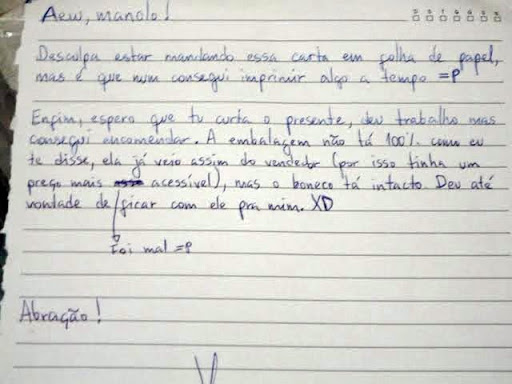 Aew, manolo!
Desculpa estar mandando essa carta em folha de papel,
mas é que num consegui imprimir algo a tempo =P
Enfim, espero que tu curta o presente, deu trabalho mas
consegui encomendar. A embalagem não tá 100% como eu
te disse, ela já veio assim do vendedor (por isso tinha um
preço mais acessível), mas o boneco tá intacto. Deu até
vontade de ficar com ele pra mim. XD
Foi mal =P
Abração!